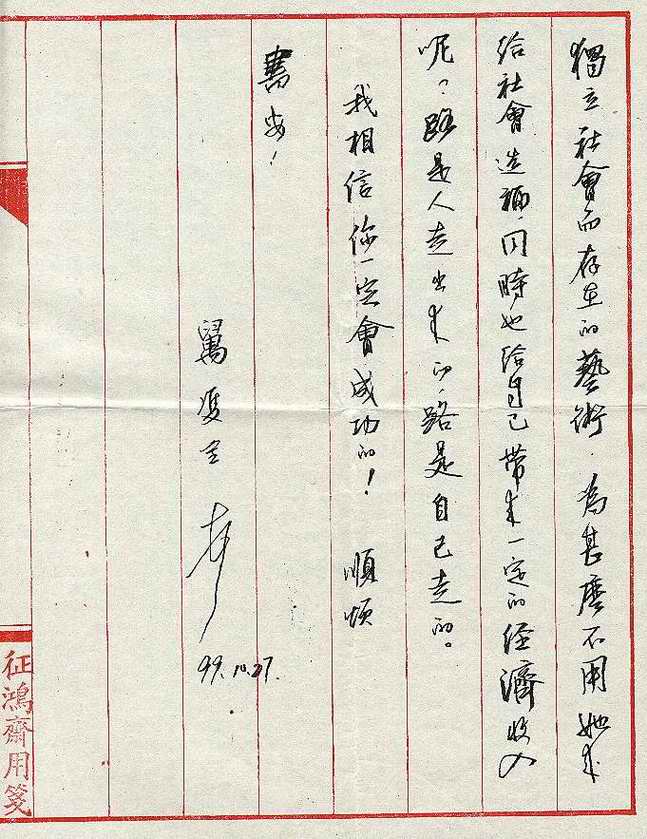 獨立社會而存在的藝術.為甚麼不用她來
給社會造福,同時也給自己带來一定的经濟收入
呢?路是人走出來的,路是自己走的。
我相信你一定會成功的! 順頌
書安!
99.10.27.
征鴻齋用箋